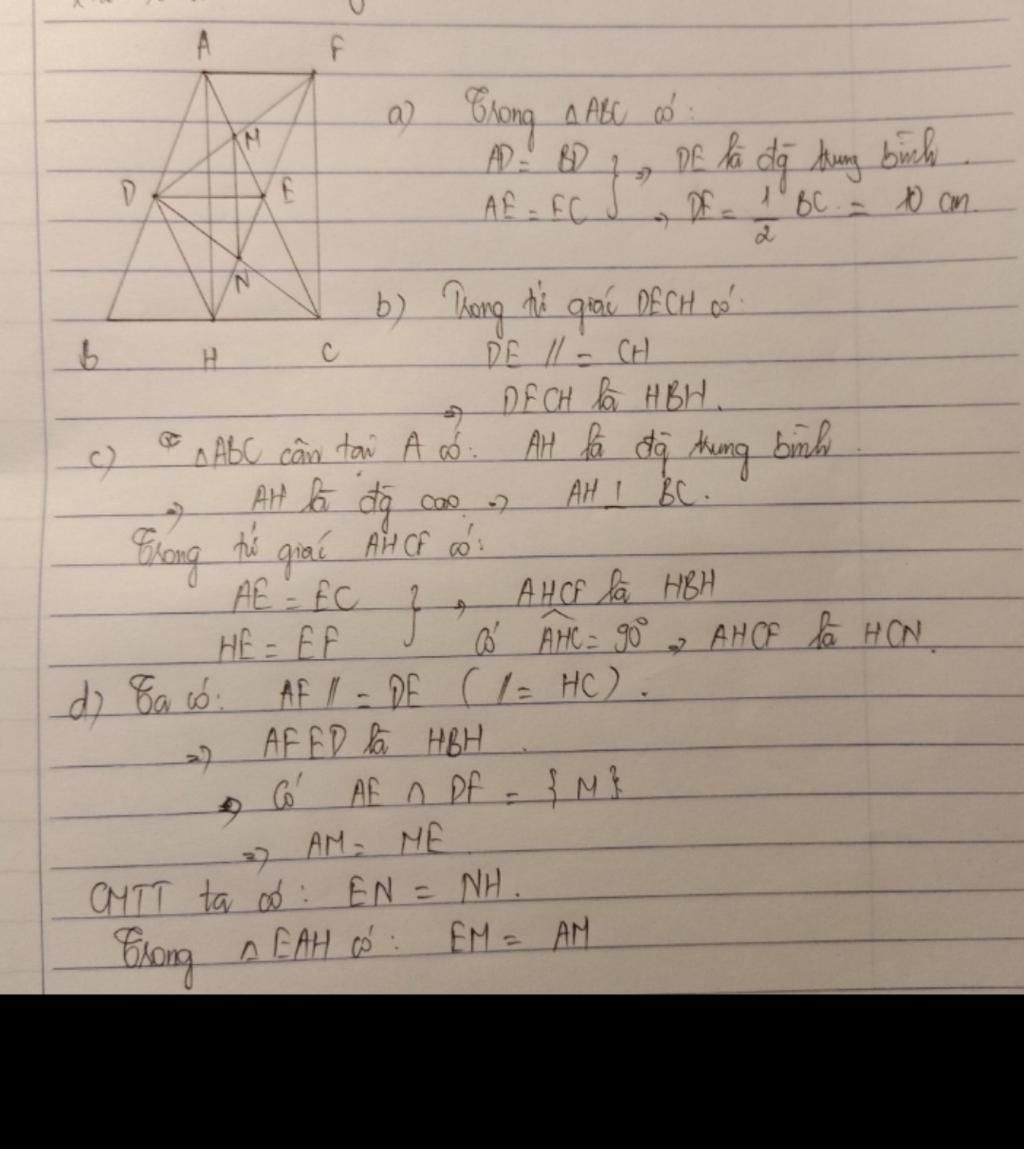 A F
M
D E
N
B H C
a) Trong △ABC có:
AD = BD } => DE là đg trung bình.
AE = EC => DE = 1/2 BC = 10 cm.
b) Trong tứ giác DECH có:
DE // = CH
=> DECH là HBH.
c) △ABC cân tại A có: AH là đg trung bình.
=> AH là đg cao => AH ⊥ BC.
Trong tứ giác AHCF có:
AE = EC } => AHCF là HBH
HE = EF Có AHC = 90° => AHCF là HCN.
d) Ta có: AF // = DE ( // = HC ).
=> AFED là HBH.
=> Có AE ∩ DF = { M }
=> AM = ME
CMTT ta có: EN = NH.
Trong △EAH có: EM = AM